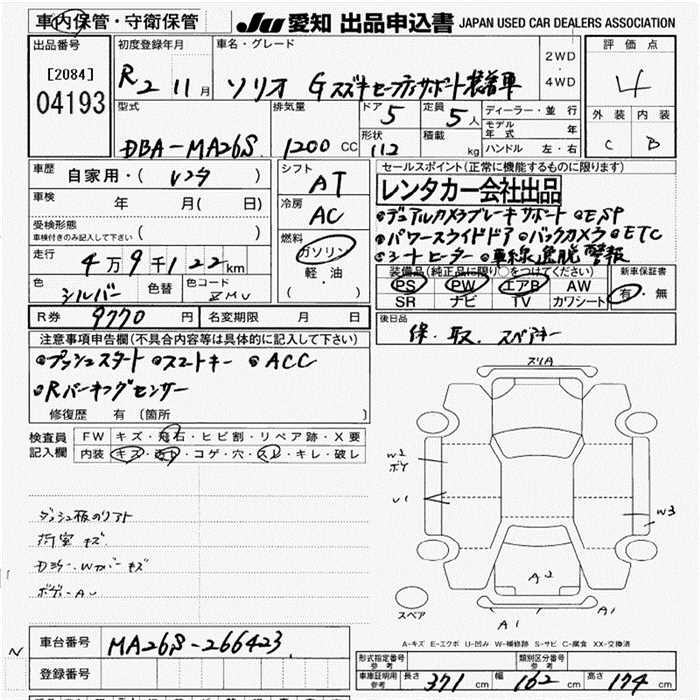 車内保管・守衛保管 JU 愛知 出品申込書 JAPAN USED CAR DEALERS ASSOCIATION
出品番号 初度登録年月 車名・グレード 2WD・4WD 評価点
[2084] 04193 R2 11月 ソリオ Gスズキセーフティサポート装着車 4
型式 排気量 ドア 5 定員 5人 ディーラー・並行 外装 内装
DBA-MA26S 1200 CC 形状 112 積載 kg モデル年式 年 C B
ハンドル 左・右
車歴 自家用・(レンタ) シフト AT セールスポイント(正常に機能するものに限ります)
レンタカー会社出品
車検 年 月(日) 冷房 AC ●デュアルカメラブレーキサポート ●ESP
受検形態 車検付きのみ記入して下さい ( ) ●パワースライドドア ●バックカメラ ●ETC
走行 4万9千122km 燃料 ガソリン・軽油 ( ) ●シートヒーター ●車線逸脱警報
装備品(純正品に限り○をつけてください) 新車保証書
色 シルバー 色替 色コード ZMV PS PW エアB AW 有・無
SR ナビ TV カワシート
R券 9770円 名変期限 月 日 後日品
保. 取. スペアキー
注意事項申告欄(不具合内容等は具体的に記入して下さい)
●プッシュスタート ●スマートキー ●ACC
●Rパーキングセンサー
修復歴 有 〔箇所 〕
検査員記入欄 FW キズ・飛石・ヒビ割・リペア跡・X要
内装 キズ・・コゲ・穴・スレ・キレ・破レ
スリA
W2
ボY
U1
W3
A2
A1 A1
スペア
ダッシュ板のリフト
荷室キズ
Wカバーキズ
ボデーAU
A-キズ E-エクボ U-凹み W-補修跡 S-サビ C-腐食 XX-交換済
車台番号 MA26S-266423
形式指定番号 参考 類別区分番号 参考
登録番号 車庫証明用 参考 長さ 371cm 幅 162cm 高さ 174cm
N